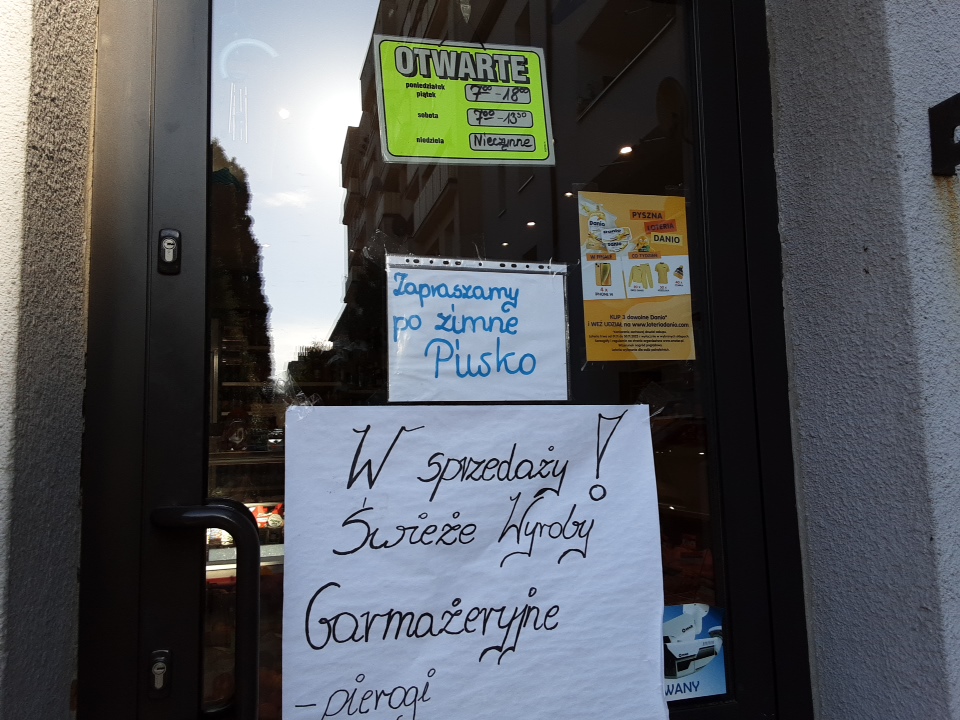 OTWARTE
poniedziałek
piątek
7⁰⁰-18⁰⁰
sobota
7⁰⁰-13³⁰
niedziela
Nieczynne
PYSZNA
LOTERIA
DANIO
Danio
W PULI:
CO TYDZIEŃ:
KUP 3 dowolne Danio*
i WEŹ UDZIAŁ na www.loteriadanio.com
Zapraszamy
po zimne
Piwsko
W sprzedaży!
Świeże Wyroby
Garmażeryjne
- pierogi
WANY